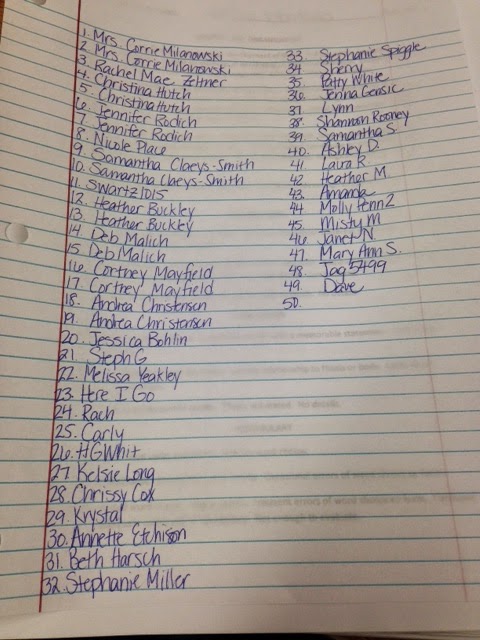 1. Mrs. Corrie Milanowski
2. Mrs. Corrie Milanowski
3. Rachel Mae Zeltner
4. Christina Hutch
5. Christina Hutch
6. Jennifer Rodich
7. Jennifer Rodich
8. Nicole Place
9. Samantha Claeys-Smith
10. Samantha Claeys-Smith
11. Swartz1015
12. Heather Buckley
13. Heather Buckley
14. Deb Malich
15. Deb Malich
16. Cortney Mayfield
17. Cortney Mayfield
18. Andrea Christensen
19. Andrea Christensen
20. Jessica Bohlin
21. Steph G
22. Melissa Yeakley
23. Here I Go
24. Rach
25. Carly
26. HGWhit
27. Kelsie Long
28. Chrissy Cox
29. Krystal
30. Annette Etchison
31. Beth Harsch
32. Stephanie Miller
33. Stephanie Spiggle
34 Sherry
35. Patty White
36. Jenna Gensic
37. Lynn
38. Shannon Rooney
39. Samantha S.
40. Ashley D.
41. Laura R.
42. Heather M.
43. Amanda
44 Molly Penn2
45. Misty M
46. Janet N
47. Mary Ann S.
48 Jag5499
49 Dave
50.